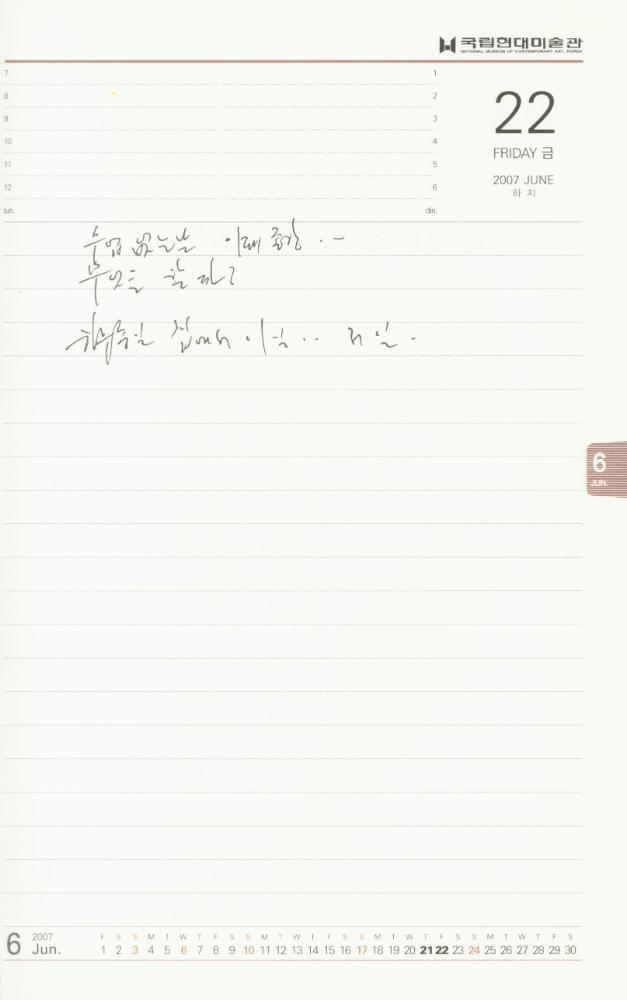 국립현대미술관
NATIONAL MUSEUM OF CONTEMPORARY ART, KOREA
7 1
8 2
9 3
10 4
11 5
12 6
lun. din.
22
FRIDAY 금
2007 JUNE
하 지
수업 없는날
무엇을 할 까?
하루종일 집에서
6
JUN.
6 2007 Jun.
F S S M T W T F S S M T W T F S S M T W T F S S M T W T F S
1 2 3 4 5 6 7 8 9 10 11 12 13 14 15 16 17 18 19 20 21 22 23 24 25 26 27 28 29 30